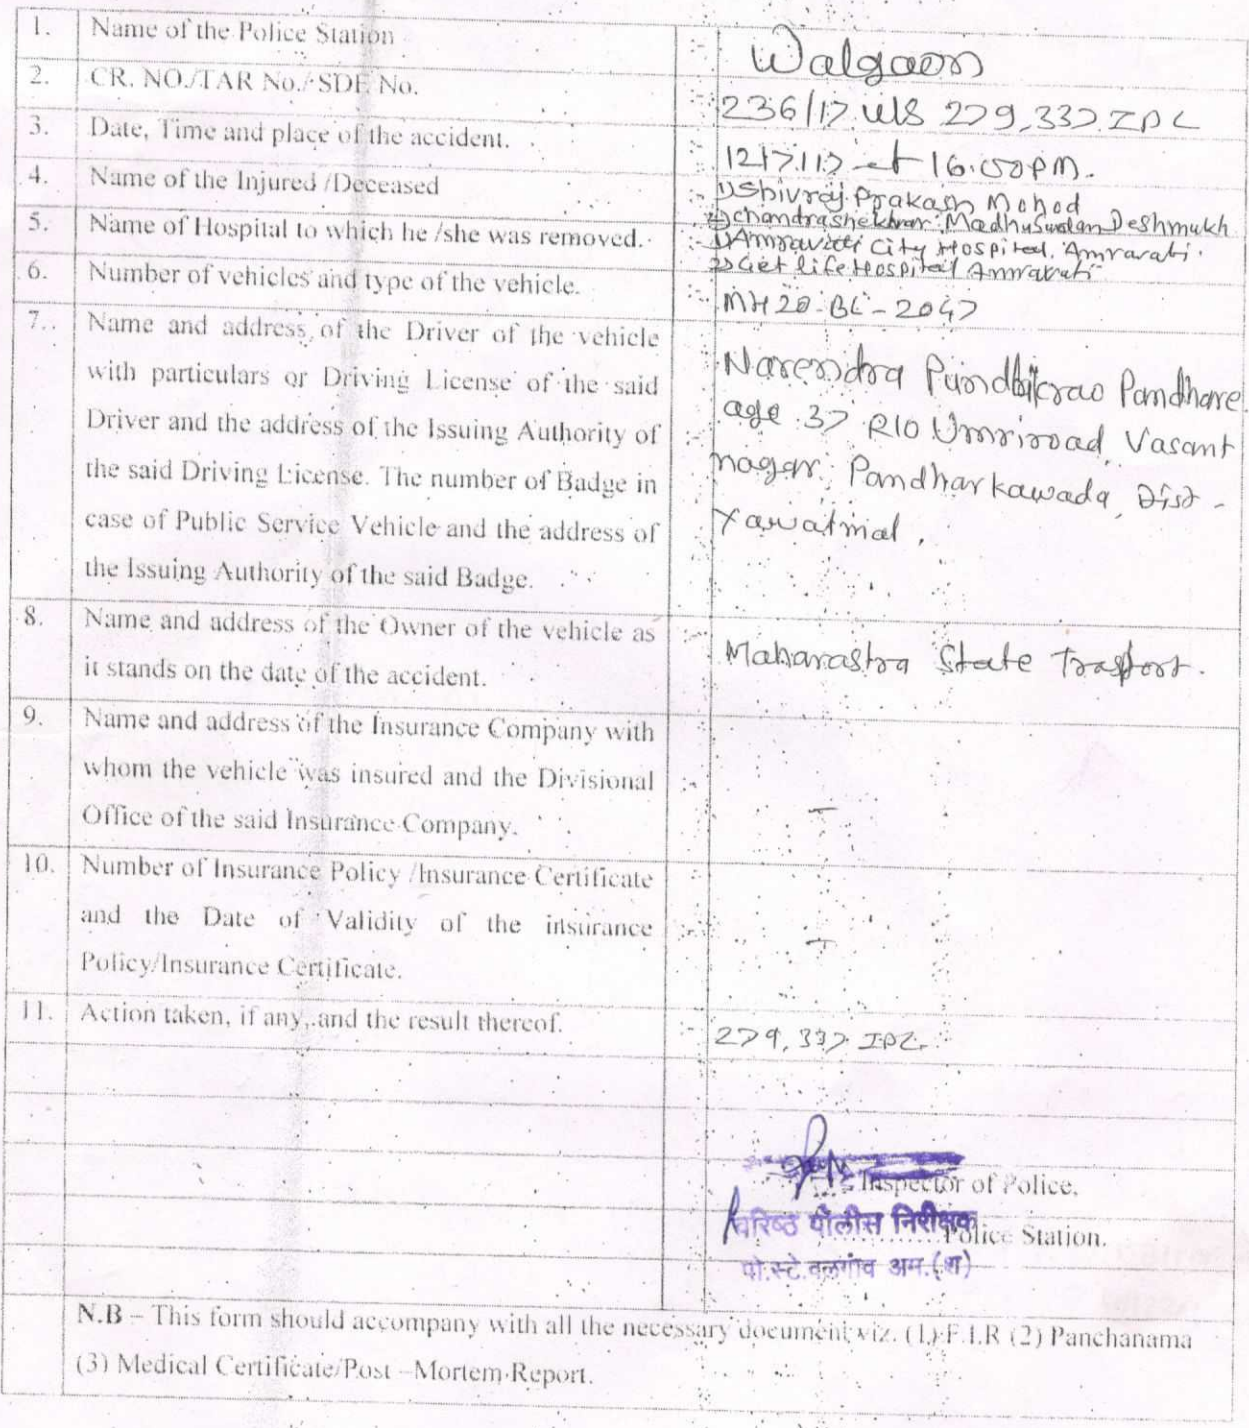 1. Name of the Police Station :- Walgaon
2. CR. NO./TAR No./ SDE No. :- 236/17 U/S 279,337 IPC
3. Date, Time and place of the accident. :- 12/7/17 at 16.00 PM.
4. Name of the Injured /Deceased :- 1) Shivraj Prakash Mohod
2) Chandrashekhar Madhusudan Deshmukh
5. Name of Hospital to which he /she was removed. :- 1) Amravati City Hospital, Amravati.
2) Get life Hospital Amravati
6. Number of vehicles and type of the vehicle. :- MH 20-BL-2047
7. Name and address of the Driver of the vehicle
with particulars or Driving License of the said
Driver and the address of the Issuing Authority of
the said Driving License. The number of Badge in
case of Public Service Vehicle and the address of
the Issuing Authority of the said Badge.
:- Narendra Pundlikrao Pandhare
age 37 R/o Umri road, Vasant
nagar, Pandharkawada, Dist -
Yawatmal,
8. Name and address of the Owner of the vehicle as
it stands on the date of the accident.
:- Maharastra State Trasport.
9. Name and address of the Insurance Company with
whom the vehicle was insured and the Divisional
Office of the said Insurance Company.
:- —
10. Number of Insurance Policy /Insurance Certificate
and the Date of Validity of the insurance
Policy/Insurance Certificate.
:- —
11. Action taken, if any, and the result thereof. :- 279, 337 IPC.
Inspector of Police.
वरिष्ठ पोलीस निरीक्षक
Police Station.
पो.स्टे.वलगांव अम.(श)
N.B – This form should accompany with all the necessary document viz. (1) F.I.R (2) Panchanama
(3) Medical Certificate/Post –Mortem Report.